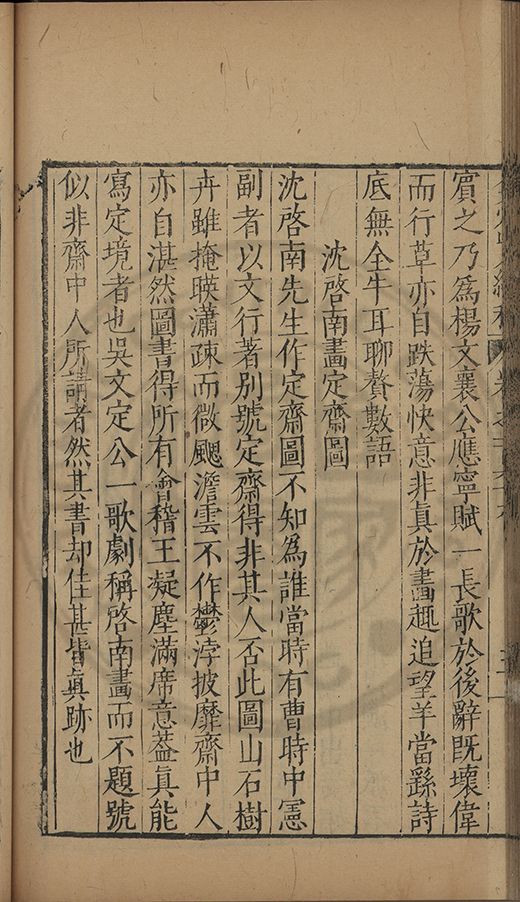 賓之乃爲楊文襄公應寧賦一長歌於後辭既壞偉
而行草亦自跌蕩快意非眞於畵趣追望羊當繇詩
底無全牛耳聊贅數語
沈啓南畵定齋圖
沈啓南先生作定齋圖不知為誰當時有曹時中憲
副者以文行著別號定齋得非其人否此圖山石樹
卉雖掩暎瀟疎而微颸澹雲不作鬱浡披靡齋中人
亦自湛然圖書得所有會稽王凝塵滿席意葢眞能
寫定境者也吳文定公一歌劇稱啓南畵而不題號
似非齋中人所請者然其書却佳甚皆眞跡也